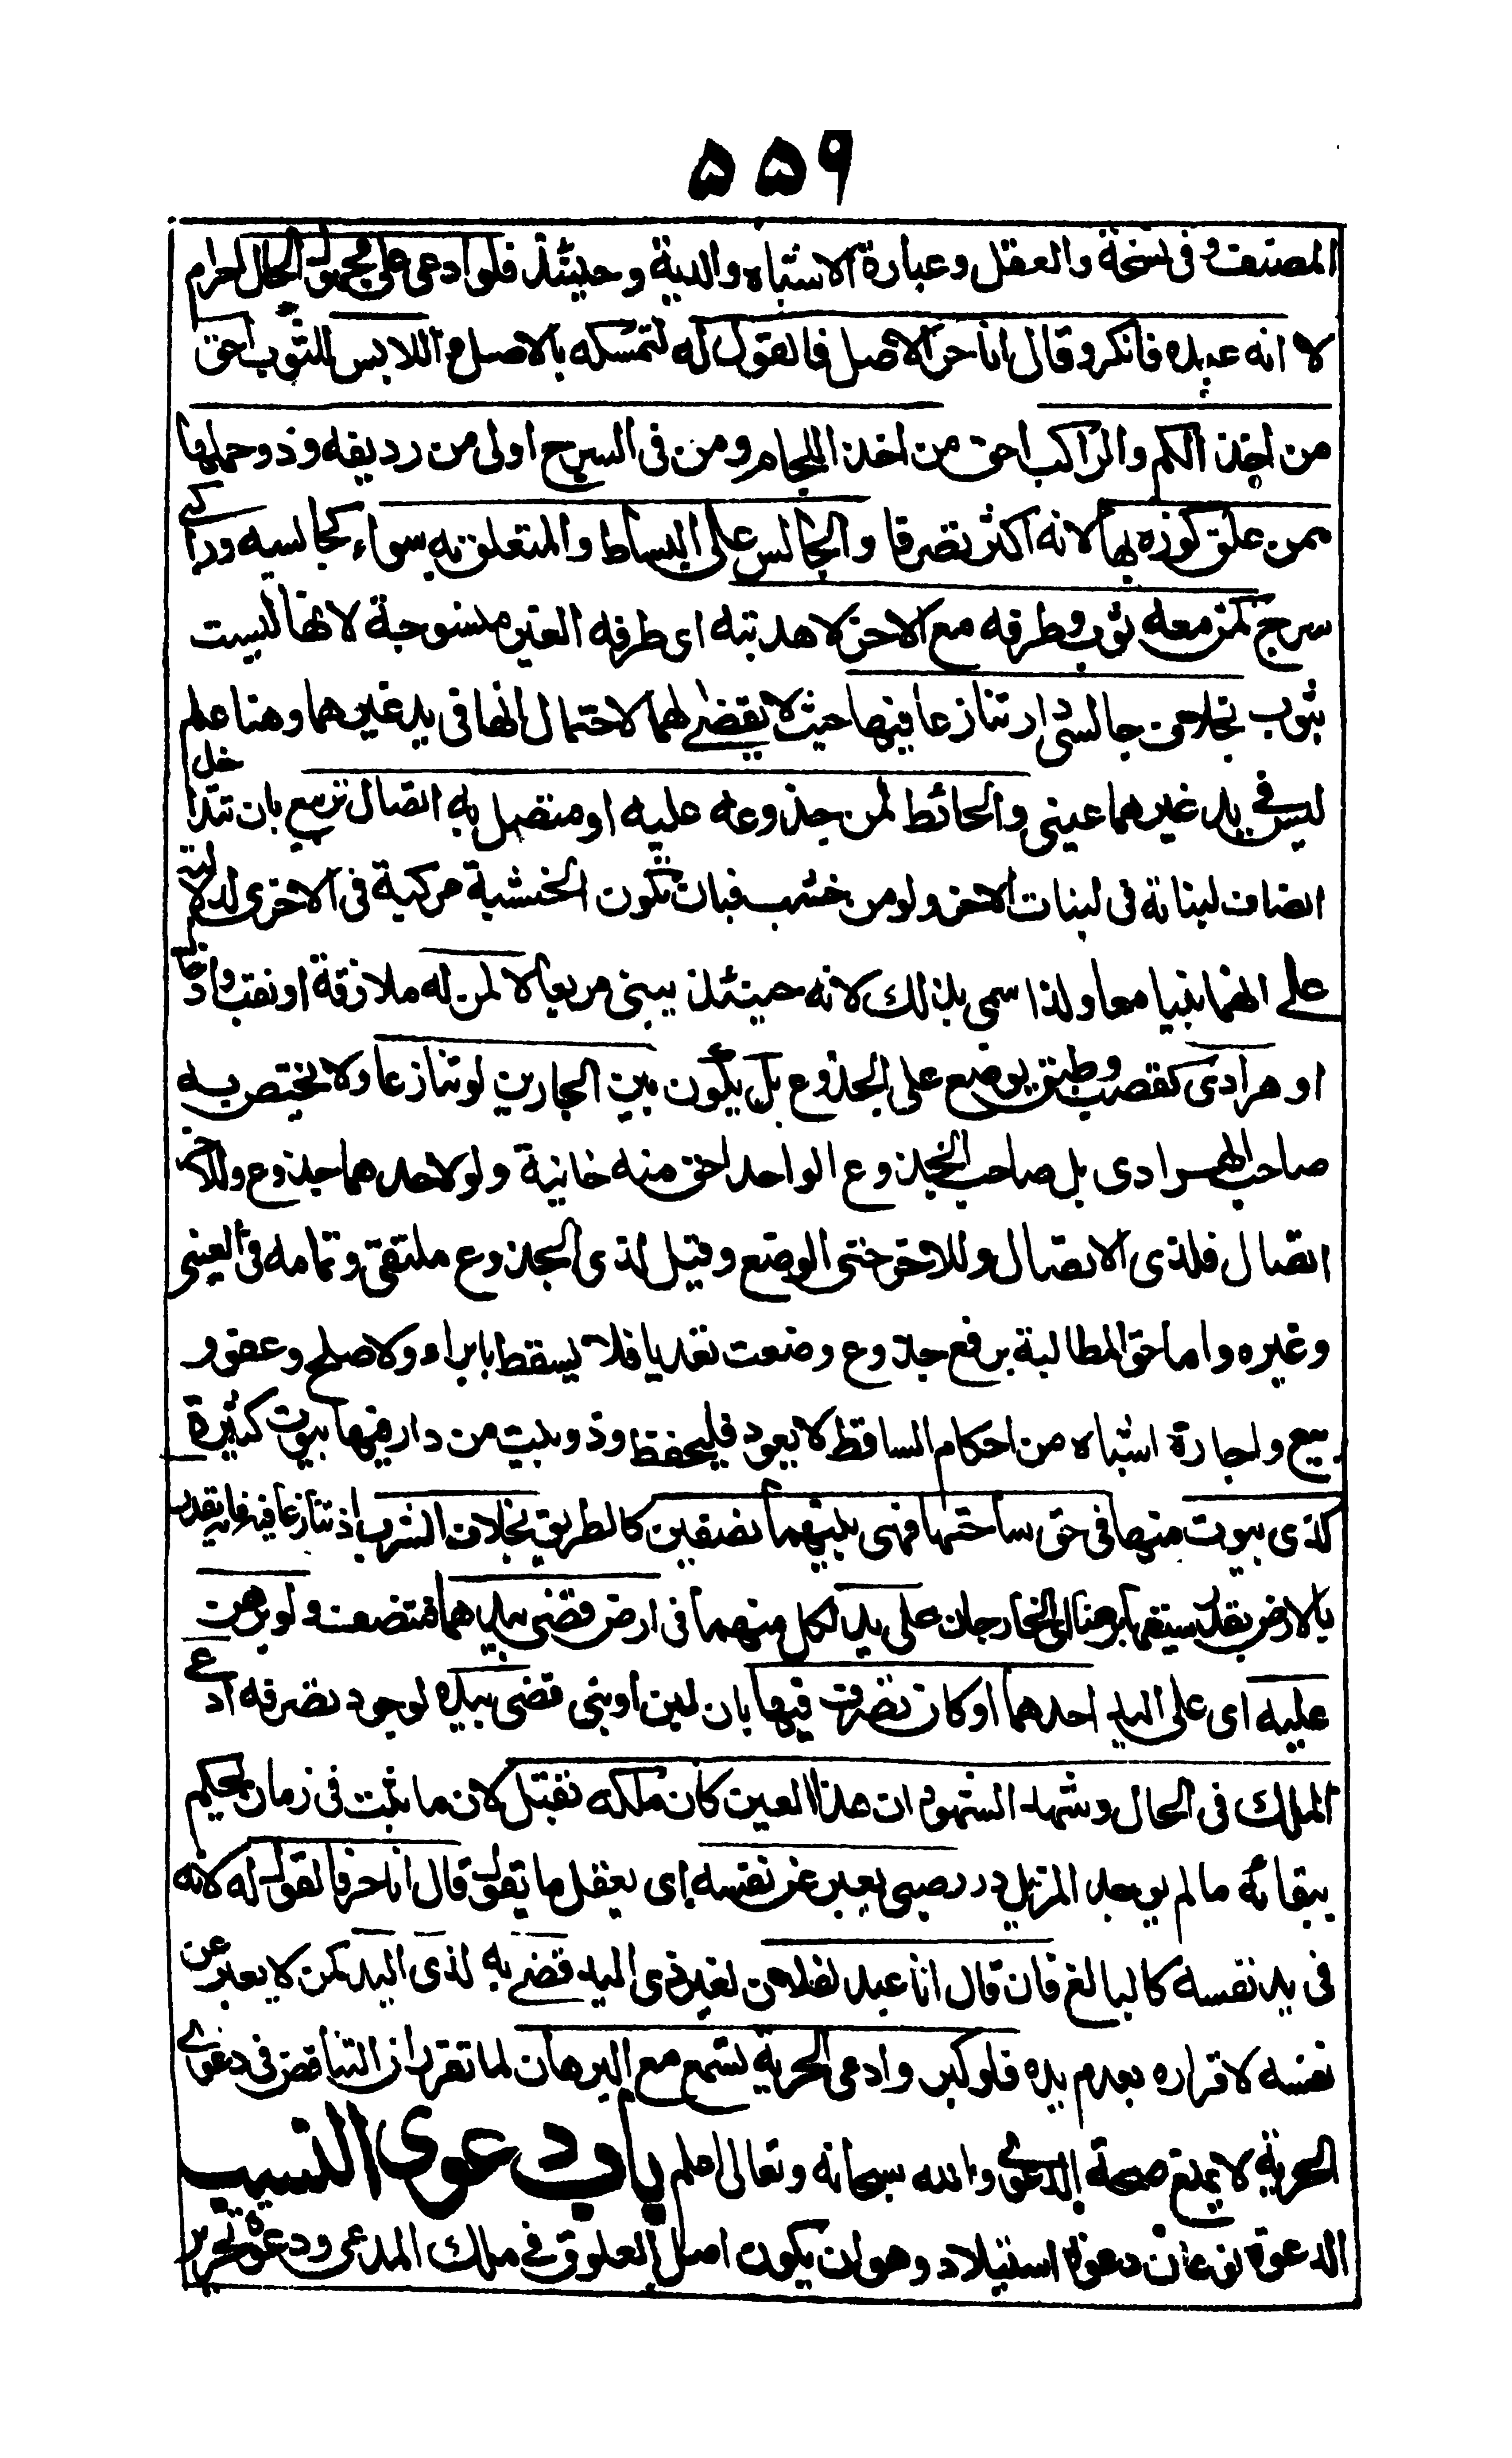 ٥٥٩
المصنف وفى نسخة والعقل وعبارة الاشباه والدية وحينئذ فلو ادعى على مجهول الحال احرام
لا انه عبده فانكر وقال انا حر الاصل فالقول له لتمسكه بالاصل واللابس للثوب احق
من اخذ الكم والراكب احق من اخذ اللجام ومن فى السرج اولى من رديفه وذو حملها
ممن علق كوزه بها لانه اكثر تصرفا والجالس على البساط والمتعلق به سواء كجالسيه وراكبى
سرج كمن معه ثوب وطرفه مع الاخر لا هدبته اى طرفه الغير منسوجة لانها ليست
بثوب بخلاف جالسى دار تنازعا فيها حيث لا يقضى لهما لاحتمال انها فى يد غيرهما وهنا علم
ليس فى يد غيرهما عينى والحائط لمن جذوعه عليه او متصل به اتصال تربيع بان تتداخل
انصاف لبناته فى لبنات الاخر ولو من خشب فبان تكون الخشبة مركبة فى الاخرى لدلالته
على انهما بنيا معا ولذا سمى بذلك لانه حينئذ يبنى مربعا لا لمن له ملازقة او نقب وادخال
او هرادى كقصب وطبق يوضع على الجذوع بل يكون بين الجارين لو تنازعا ولا يختص به
صاحب الهرادى بل صاحب الجذوع الواحد احق منه خانية ولو لاحدهما جذوع وللاخر
اتصال فلذى الاتصال وللاخر حق الوضع وقيل لذى الجذوع ملتقى وتمامه فى العينى
وغيره واما حق المطالبة برفع جذوع وضعت تعديا فلا يسقط بابراء ولا صلح وعفو و
بيع واجارة اشباه من احكام الساقط لا يعود فليحفظ وذو بيت من دار فيها بيوت كثيرة
كذى بيوت منها فى حق ساحتها فهى بينهما نصفين كالطريق بخلاف الشرب اذ تنازعا فيه فانه يقدر
بالارض بقدر سقيها برهنا اى الخارجان على يد لكل منهما فى ارض قضى بيدهما فتنصف ولو برهن
عليه اى على اليد احدهما او كان تصرف فيها بان لبن او بنى قضى بيده لوجود تصرفه ادعى
الملك فى الحال وشهد الشهود ان هذا العين كان ملكه تقبل لان ما ثبت فى زمان يحكم
ببقائه ما لم يوجد المزيل درر صبى يعبر عن نفسه اى يعقل ما يقول قال انا حر فالقول له لانه
فى يد نفسه كالبالغ فان قال انا عبد لفلان لغير ذى اليد قضى به لذى اليد كمن لا يعبر عن
نفسه لاقراره بعدم يده فلو كبر وادعى الحرية تسمع مع البرهان لما تقرر ان التناقض فى دعوى
الحرية لا يمنع صحة الدعوى والله سبحانه وتعالى اعلم باب دعوى النسب
الدعوة نوعان دعوة استيلاد وهو ان يكون اصل العلوق فى ملك المدعى ودعوة تحرير